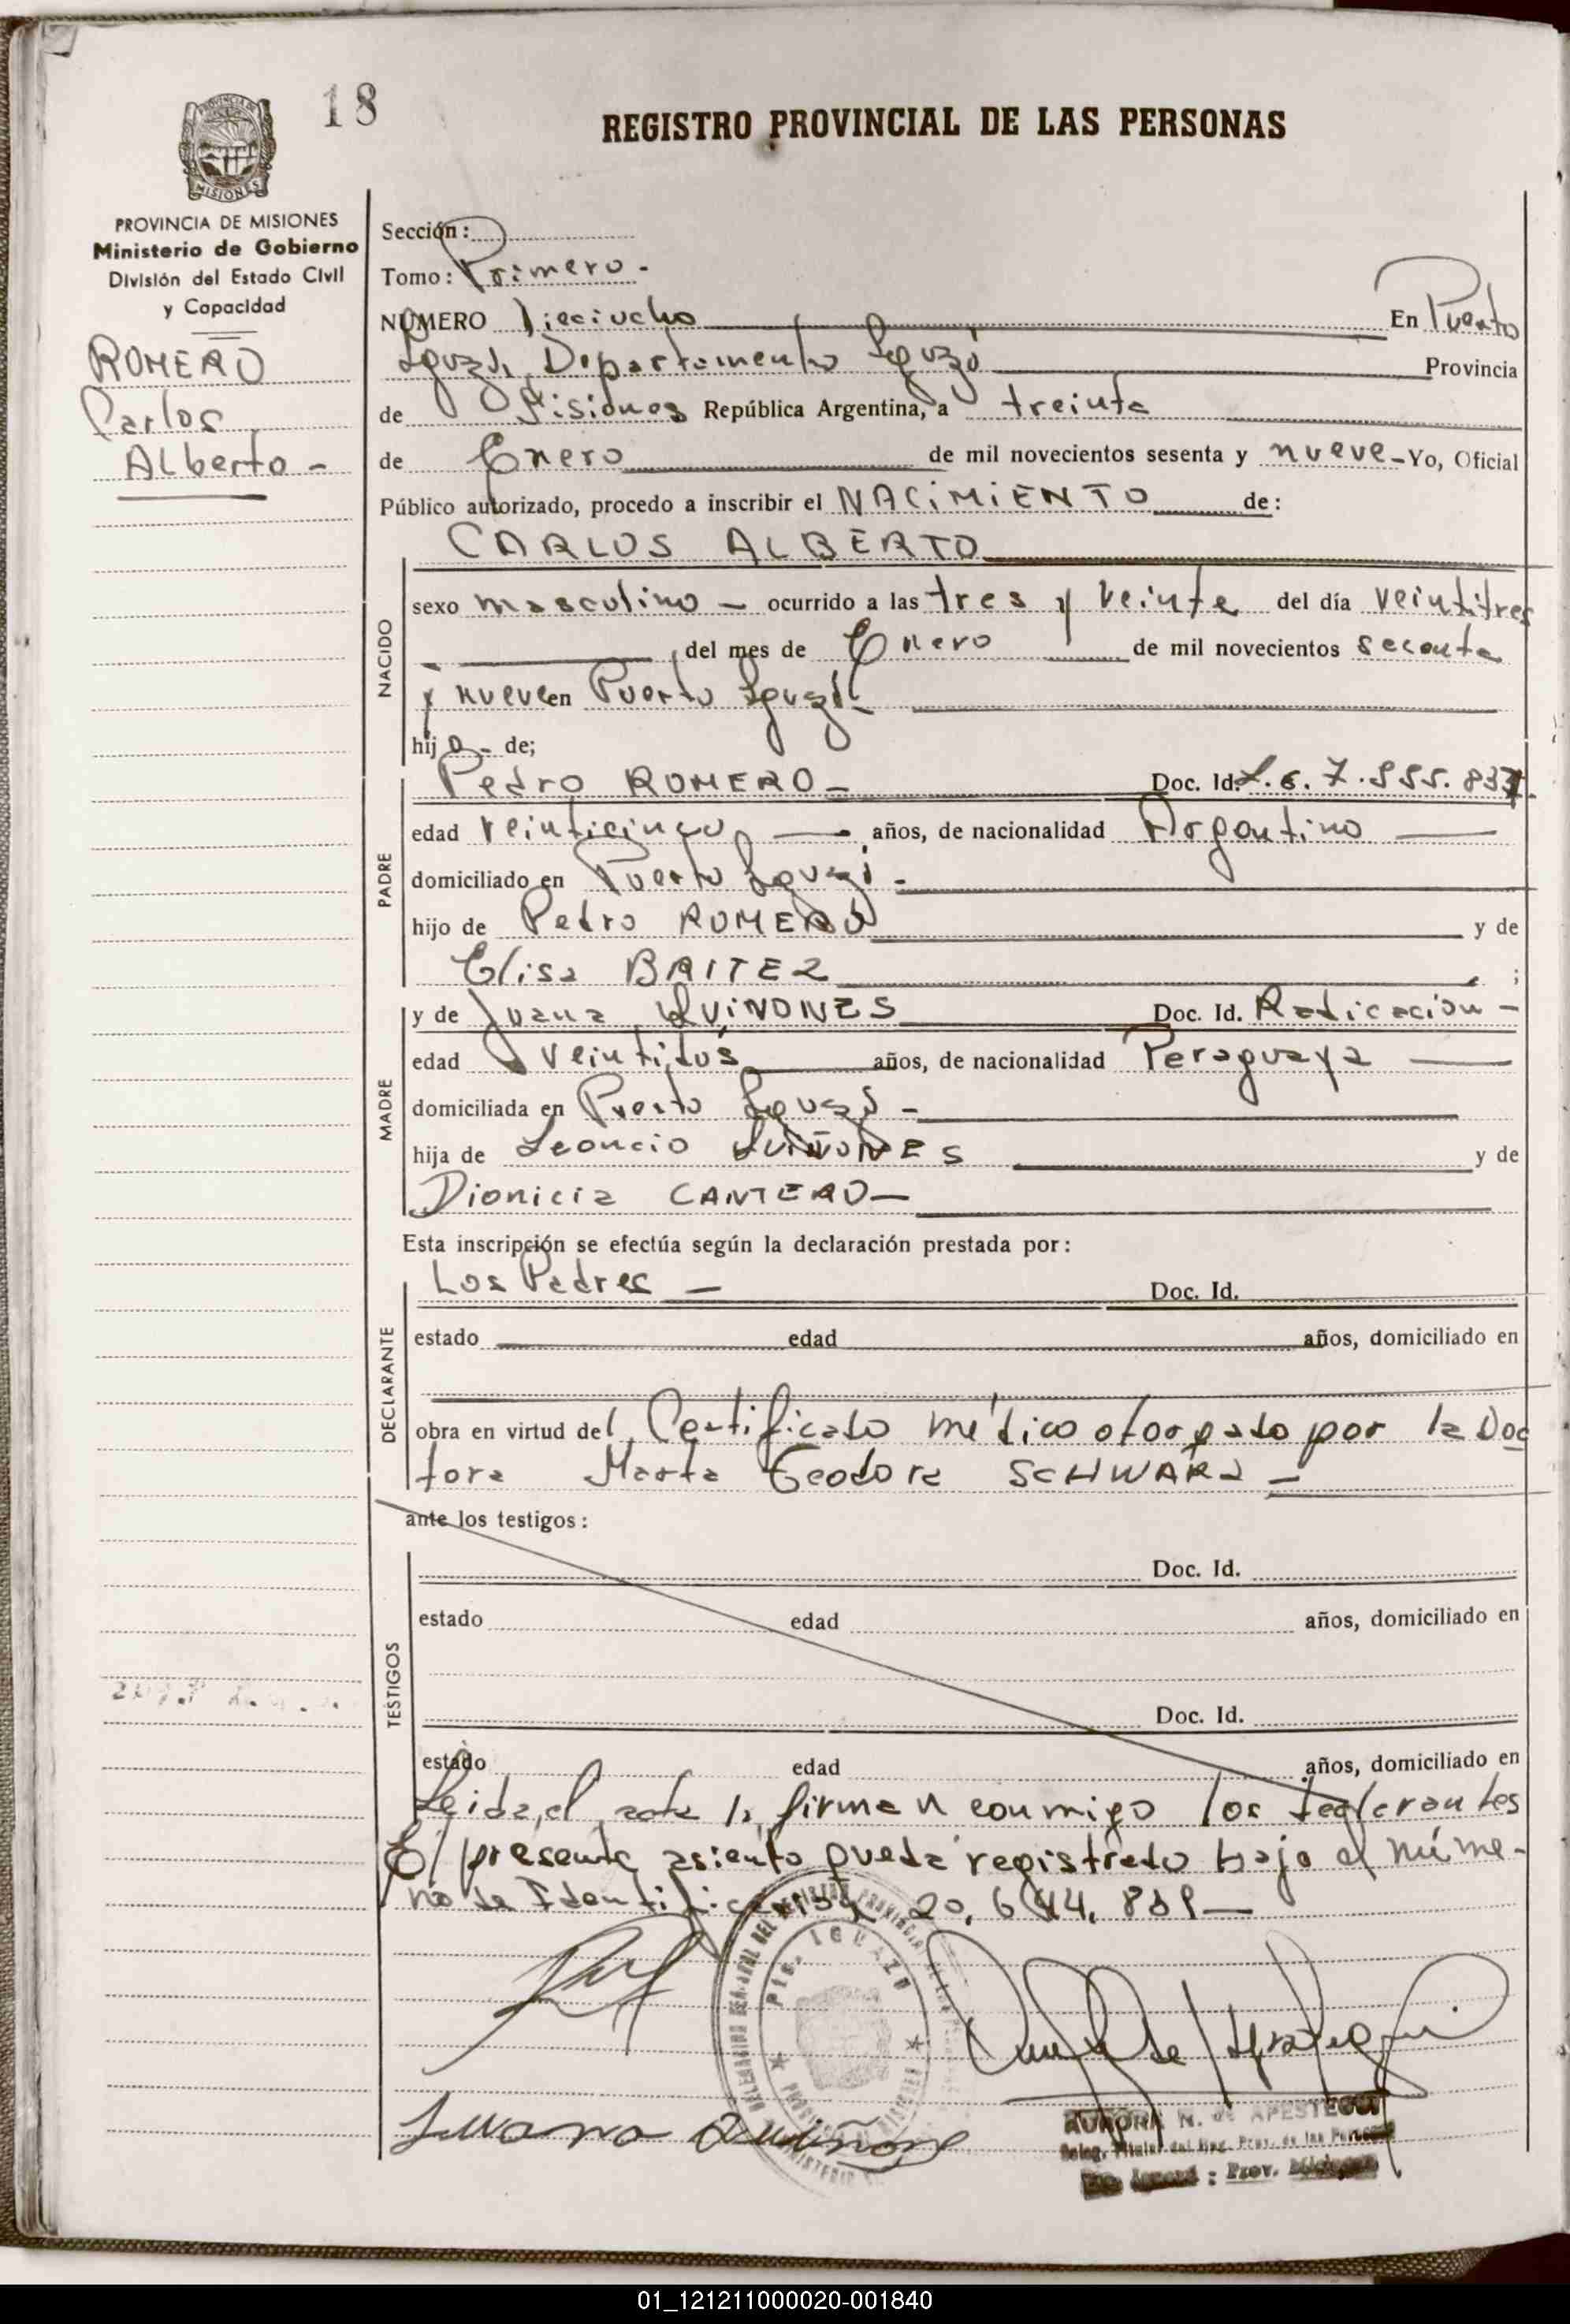 18
REGISTRO PROVINCIAL DE LAS PERSONAS
PROVINCIA DE MISIONES
Ministerio de Gobierno
División del Estado Civil
y Capacidad
ROMERO
Carlos
Alberto -
Sección:
Tomo: Primero -
NÚMERO Dieciocho En Puerto
Iguazú, Departamento Iguazú Provincia
de Misiones República Argentina, a treinta
de Enero de mil novecientos sesenta y nueve - Yo, Oficial
Público autorizado, procedo a inscribir el NACIMIENTO de:
CARLOS ALBERTO
NACIDO
sexo masculino - ocurrido a las tres y veinte del día veintitres
del mes de Enero de mil novecientos secenta
y nueve en Puerto Iguazú -
hijo - de;
PADRE
Pedro ROMERO - Doc. Id.
edad veinticinco años, de nacionalidad Argentino
domiciliado en Puerto Iguazú -
hijo de Pedro ROMERO y de
Elisa BAITEZ ;
MADRE
y de Juana QUIÑONES Doc. Id. Radicación -
edad veintidós años, de nacionalidad Paraguaya
domiciliada en Puerto Iguazú -
hija de Leoncio QUIÑONES y de
Dionicia CANTERO -
Esta inscripción se efectúa según la declaración prestada por:
DECLARANTE
Los Padres - Doc. Id.
estado edad años, domiciliado en
obra en virtud del Certificado médico otorgado por la Doc
tora Marta Teodora SCHWARZ -
ante los testigos:
TESTIGOS
Doc. Id.
estado edad años, domiciliado en
Doc. Id.
estado edad años, domiciliado en
Leida el acta la firman conmigo los declarantes
El presente asiento queda registrado bajo el núme-
ro de Identificación 20.644.
Pto. IGUAZU
Juana Quiñone
AURORA N. de APESTEGUI
Deleg. Titular del Reg. Prov. de las Personas
Pto. Iguazú : Prov. Misiones
01_121211000020-001840